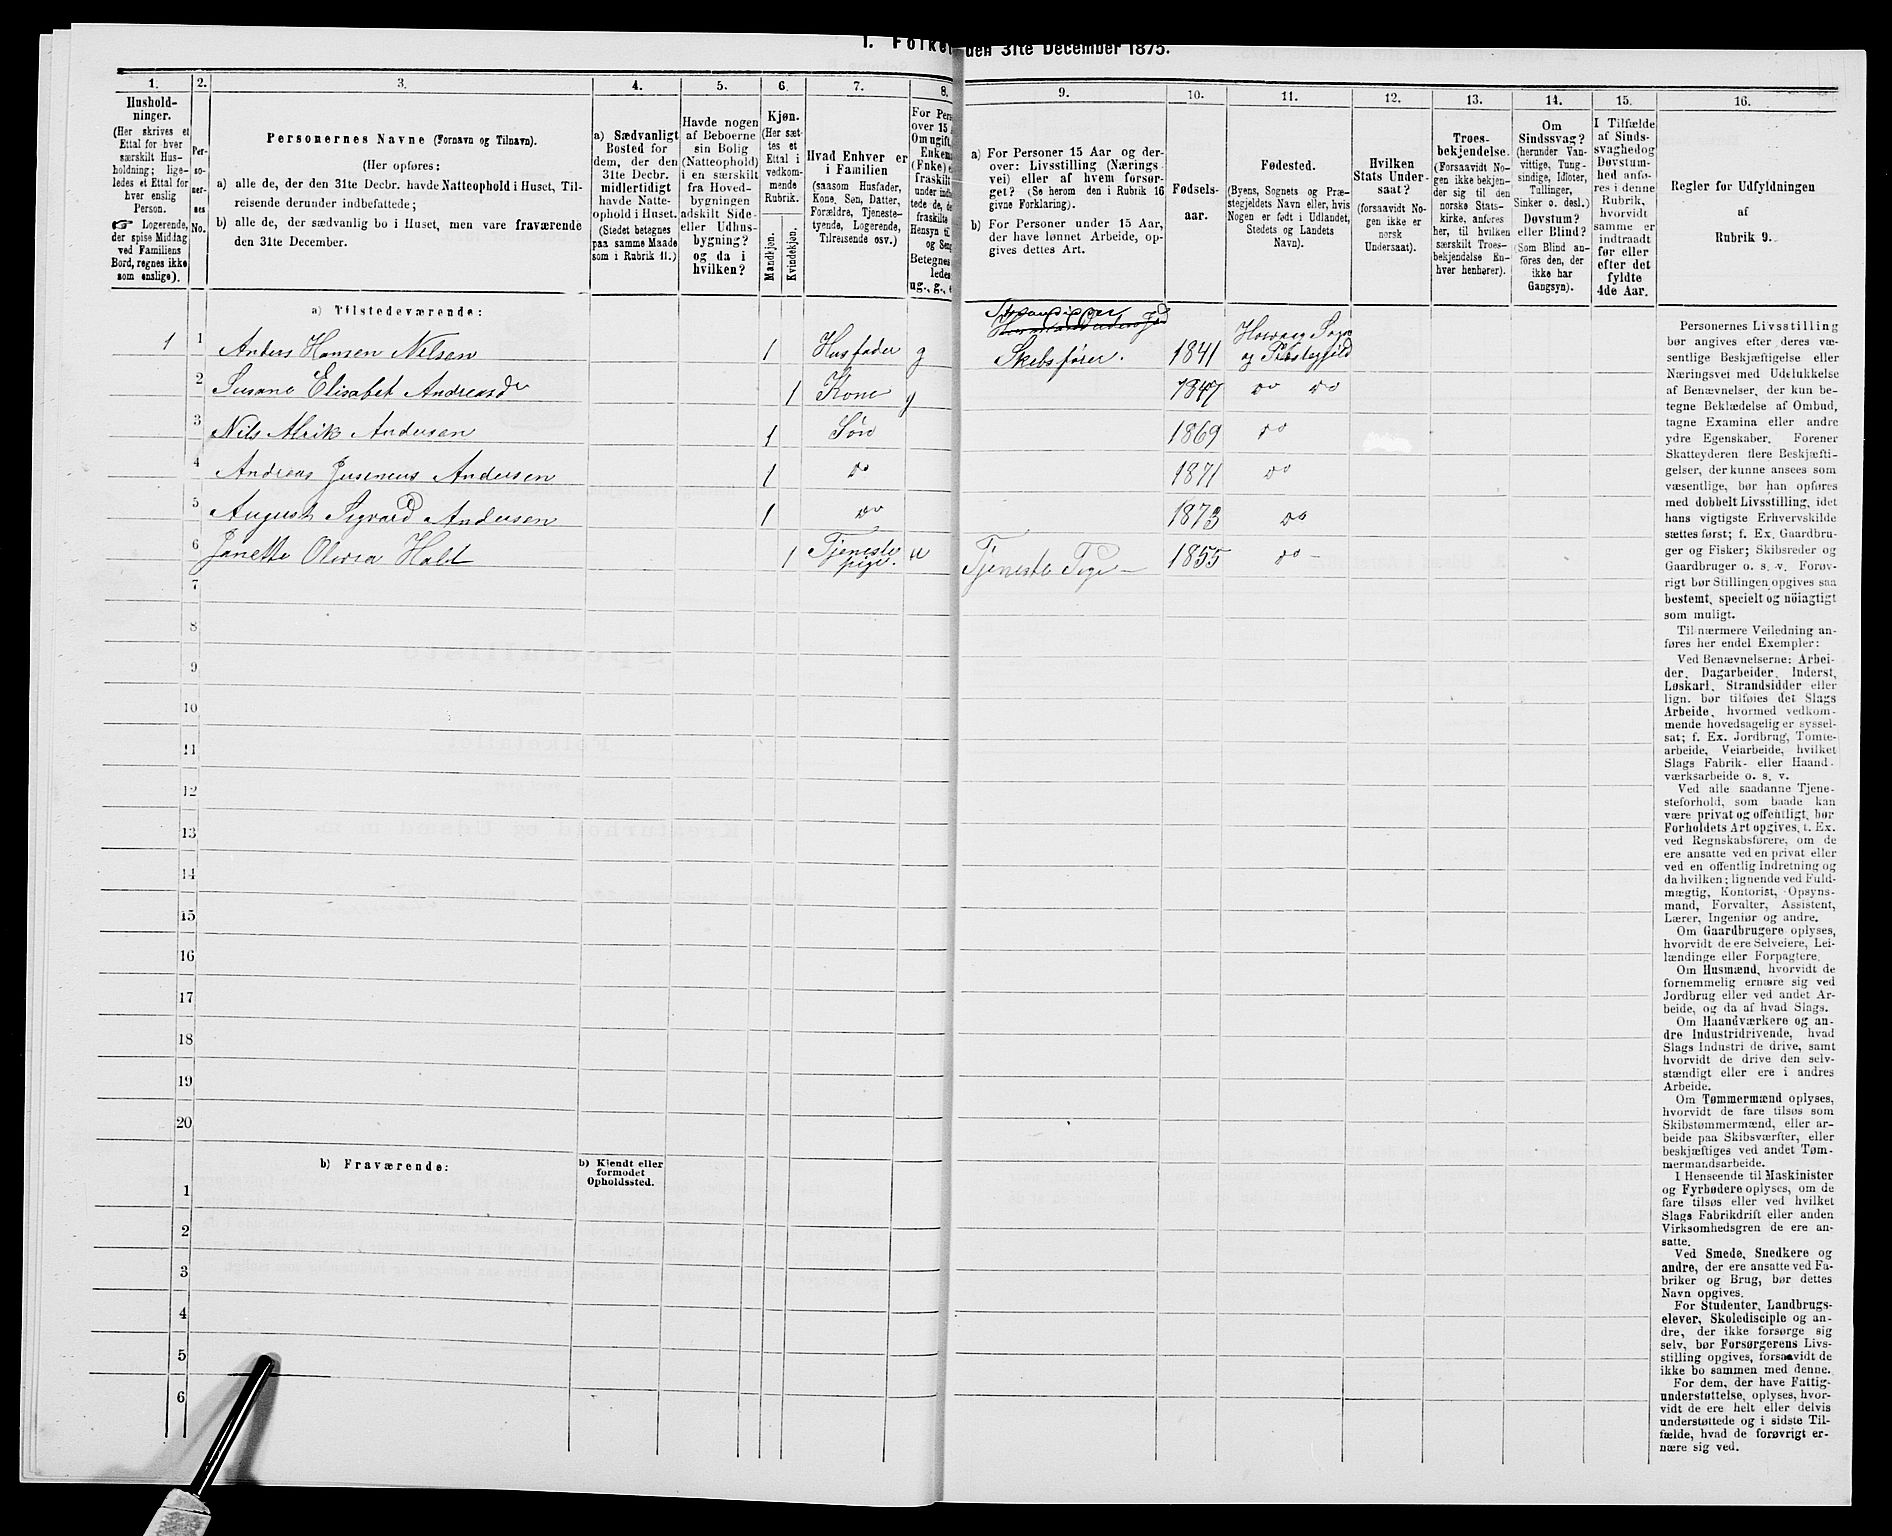 1. Folke
den 31te December 1875.
1.
Hushold-
ninger.
(Her skrives et
Ettal for hver
særskilt Hus-
holdning; lige-
ledes et Ettal for
hver enslig
Person.
☞ Logerende,
der spise Middag
ved Familiens
Bord, regnes ikke
som enslige).
2.
Per-
so-
ner-
nes
No.
3.
Personernes Navne (Fornavn og Tilnavn).
(Her opføres:
a) alle de, der den 31te Decbr. havde Natteophold i Huset, Til-
reisende derunder indbefattede;
b) alle de, der sædvanlig bo i Huset, men vare fraværende
den 31te December.
4.
a) Sædvanligt
Bosted for
dem, der den
31te Decbr.
midlertidigt
havde Natte-
ophold i Huset.
(Stedet betegnes
paa samme Maade
som i Rubrik 11.)
5.
Havde nogen
af Beboerne
sin Bolig
(Natteophold)
i en særskilt
fra Hoved-
bygningen
adskilt Side-
eller Udhus-
bygning?
og da i
hvilken?
6.
Kjøn.
(Her sæt-
tes et
Ettal i
vedkom-
mende
Rubrik.
Mandkjøn.
Kvindekjøn.
7.
Hvad Enhver er
i Familien
(saasom Husfader,
Kone, Søn, Datter,
Forældre, Tjeneste-
tyende, Logerende,
Tilreisende osv.)
8.
For Per
over 15
Om ugift,
Enkem
(Enke)
fraskilt
under ind
tede de, d
fraskilte
Hensyn til
og Sen
Betegnes
ledes
ug., g.,
9.
a) For Personer 15 Aar og der-
over: Livsstilling (Nærings-
vei) eller af hvem forsør-
get? (Se herom den i Rubrik 16
givne Forklaring).
b) For Personer under 15 Aar,
der have lønnet Arbeide, op-
gives dettes Art.
10.
Fødsels-
aar.
11.
Fødested.
(Byens, Sognets og Præ-
stegjeldets Navn eller, hvis
Nogen er født i Udlandet,
Stedets og Landets
Navn).
12.
Hvilken
Stats Under-
saat?
(forsaavidt No-
gen ikke er
norsk
Undersaat).
13.
Troes-
bekjendelse.
(Forsaavidt No-
gen ikke bekjen-
der sig til den
norske Stats-
kirke, anføres
her, til hvilken
særskilt Troes-
bekjendelse En-
hver henhører).
14.
Om
Sindssvag?
(herunder Van-
vittige, Tung-
sindige, Idioter,
Tullinger,
Sinker o. desl.)
Døvstum?
eller Blind?
(Som Blind an-
føres den, der
ikke har
Gangsyn).
15.
I Tilfælde
af Sinds-
svaghed og
Døvstum-
hed anfø-
res i denne
Rubrik,
hvorvidt
samme er
indtraadt
før eller
efter det
fyldte
4de Aar.
16.
Regler for Udfyldningen
af
Rubrik 9.
a) Tilstedeværende:
1 1 Anders Hansen Nilsen 1 Husfader g Skibsfører. 1841 og Præstegjeld
2 Susane Elisabet Andreasd 1 Kone g 1847 do do
3 Nils Alrik Andersen 1 Søn 1869 do
4 Andreas Andersen 1 do 1871 do
5 August Sigvard Andersen 1 do 1873 do
6 Janette Olevia Holt 1 Tjeneste
pige. u Tjeneste Pige 1855 do
7
8
9
10
11
12
13
14
15
16
17
18
19
20
b) Fraværende:
b) Kjendt eller
formodet
Opholdssted.
1
2
3
4
5
6
Personernes Livsstilling
bør angives efter deres væ-
sentlige Beskjæftigelse eller
Næringsvei med Udelukkelse
af Benævnelser, der kun be-
tegne Beklædelse af Ombud,
tagne Examina eller andre
ydre Egenskaber. Forener
Skatteyderen flere Beskjæfti-
gelser, der kunne ansees som
væsentlige, bør han opføres
med dobbelt Livsstilling, idet
hans vigtigste Erhvervskilde
sættes først; f. Ex. Gaardbru-
ger og Fisker; Skibsreder og
Gaardbruger o. s. v. Forøv-
rigt bør Stillingen opgives saa
bestemt, specielt og nöiagtigt
som muligt.
Til nærmere Veiledning an-
føres her endel Exempler:
Ved Benævnelserne: Arbei-
der, Dagarbeider, Inderst,
Løskarl, Strandsidder eller
lign. bør tilføies det Slags
Arbeide, hvormed vedkom-
mende hovedsagelig er syssel-
sat; f. Ex. Jordbrug, Tomte-
arbeide, Veiarbeide, hvilket
Slags Fabrik- eller Haand-
værksarbeide o. s. v.
Ved alle saadanne Tjene-
steforhold, som baade kan
være privat og offentligt, bør
Forholdets Art opgives, f. Ex.
ved Regnskabsførere, om de
ere ansatte ved en privat eller
ved en offentlig Indretning og
da hvilken; lignende ved Fuld-
mægtig, Kontorist, Opsyns-
mand, Forvalter, Assistent,
Lærer, Ingeniør og andre.
Om Gaardbrugere oplyses,
hvorvidt de ere Selveiere, Lei-
lændinge eller Forpagtere.
Om Husmænd, hvorvidt de
fornemmelig ernære sig ved
Jordbrug eller ved andet Ar-
beide, og da af hvad Slags.
Om Haandværkere og an-
dre Industridrivende, hvad
Slags Industri de drive, samt
hvorvidt de drive den selv-
stændigt eller ere i andres
Arbeide.
Om Tømmermænd oplyses,
hvorvidt de fare tilsøs som
Skibstømmermænd, eller ar-
beide paa Skibsværfter, eller
beskjæftiges ved andet Tøm-
mermandsarbeide.
I Henseende til Maskinister
og Fyrbødere oplyses, om de
fare tilsøs eller ved hvilket
Slags Fabrikdrift eller anden
Virksomhedsgren de ere an-
satte.
Ved Smede, Snedkere og
andre, der ere ansatte ved Fa-
briker og Brug, bør dettes
Navn opgives.
For Studenter, Landbrugs-
elever, Skoledisciple og an-
dre, der ikke forsørge sig
selv, bør Forsørgerens Livs-
stilling opgives, forsaavidt de
ikke bo sammen med denne.
For dem, der have Fattig-
understøttelse, oplyses, hvor-
vidt de ere helt eller delvis
understøttede og i sidste Til-
fælde, hvad de forøvrigt er-
nære sig ved.